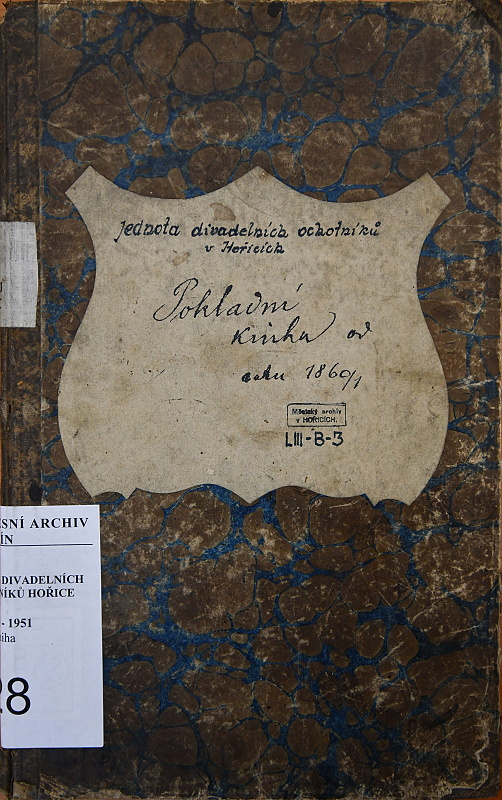 Jednota divadelních ochotníků
v Hořicích
Pokladní
kniha od
roku 1860/1
Městský archiv
v HOŘICÍCH.
LIII-B-3
ESNÍ ARCHIV
ÍN
DIVADELNÍCH
NÍKŮ HOŘICE
- 1951
niha
28